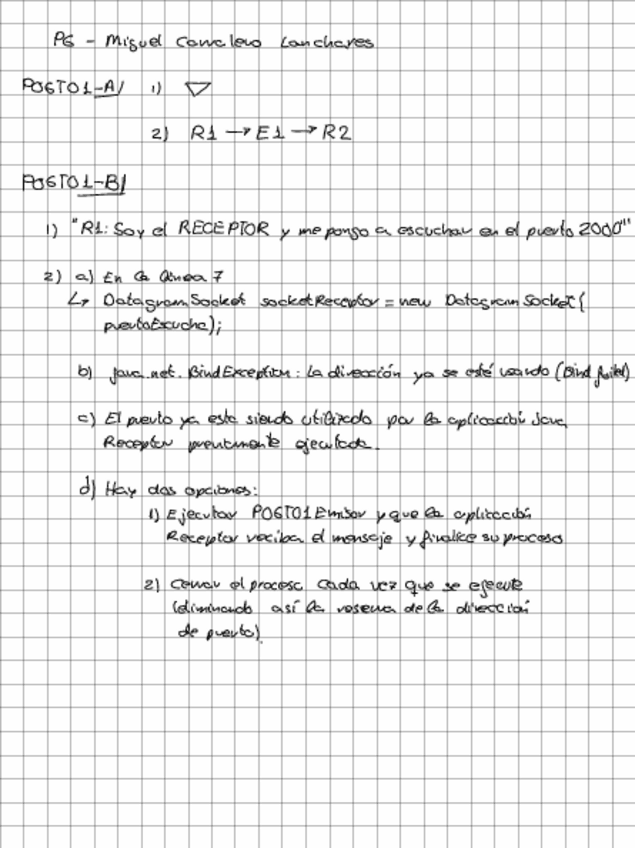 P6 - Miguel Carralero Lanchares
P06T01-A/ 1) ▽
2) R1 → E1 → R2
P06T01-B/
1) "R1: Soy el RECEPTOR y me pongo a escuchar en el puerto 2000"
2) a) En la línea 7
↳ DatagramSocket socketReceptor = new DatagramSocket(
puertoEscucha);
b) java.net.BindException: La dirección ya se está usando (Bind failed)
c) El puerto ya esta siendo utilizado por la aplicación Java
Receptor previamente ejecutada.
d) Hay dos opciones:
1) Ejecutar P06T01Emisor y que la aplicación
Receptor reciba el mensaje y finalice su proceso
2) Cerrar el proceso cada vez que se ejecute
(eliminando así la reserva de la dirección
de puerto).